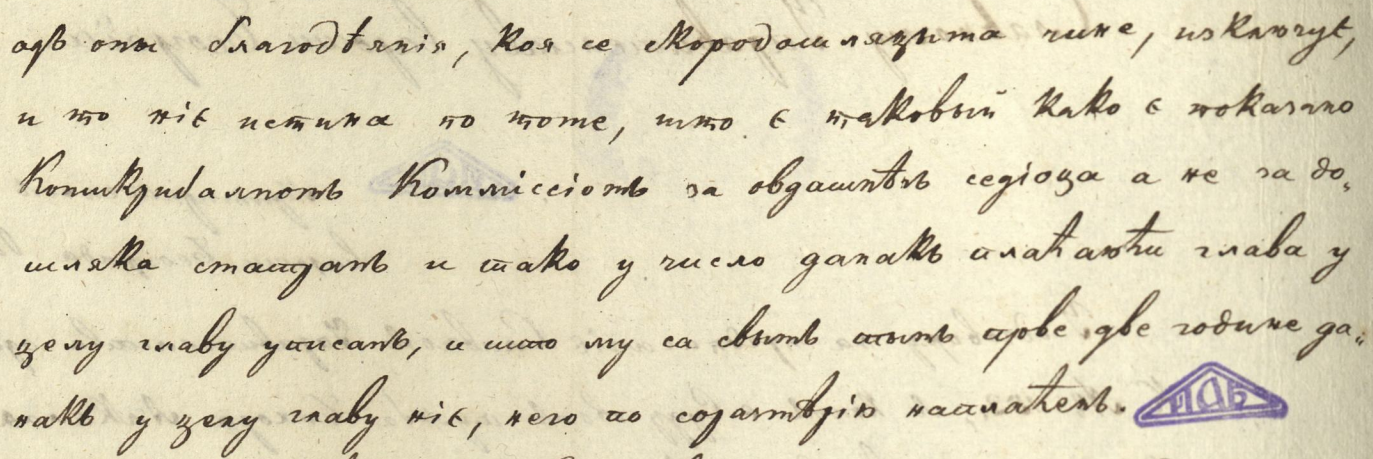 одъ оны благодѣянія, коя се скородошляцыма чине, изключує,
и то ніє истина по томе, што є таковый како є показано
Конскрибалномъ Коммісіомъ за овдашнѣгъ седіоца а не за до„
шляка сматранъ и тако у число данакъ плаћаюћи глава у
целу главу уписанъ, и што му са свымъ тымъ прве две године да„
накъ у целу главу ніє, него по соразмѣрію наплаћенъ.
ПАБ